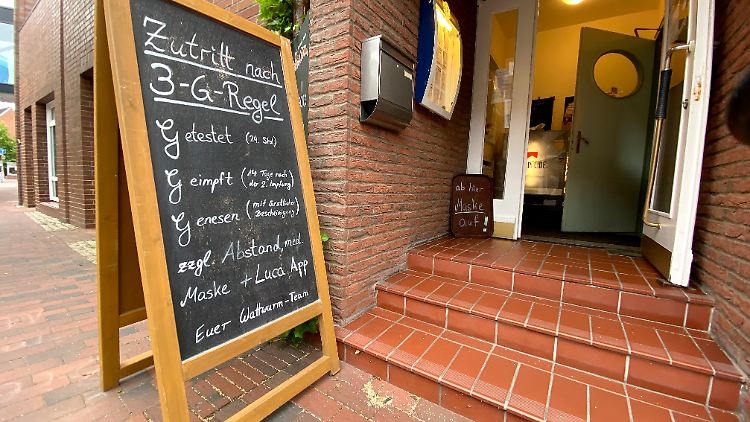 Zutritt nach
3-G-Regel
Getestet (24. Std.)
Geimpft (14 Tage nach der 2. Impfung)
Genesen (mit ärztlicher Bescheinigung)
zzgl. Abstand, med.
Maske + Luca App
Euer Wattwurm-Team
ab hier
Maske
auf